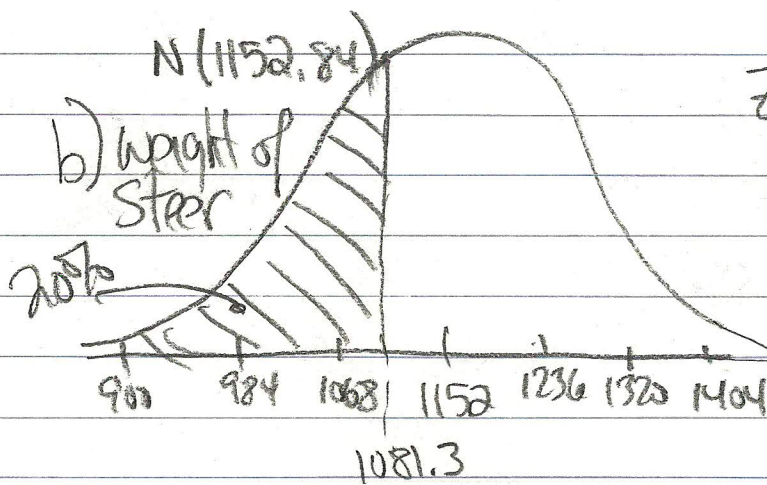 N(1152, 84)
b) weight of
Steer
20%
900 984 1068 1152 1236 1320 1404
1081.3